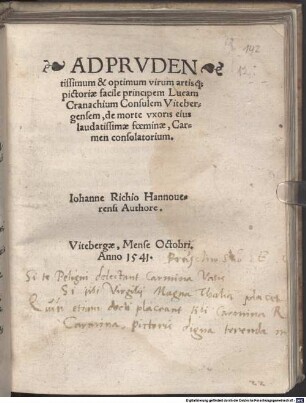 AD PRVDEN
tissimum & optimum virum artisq;
pictoriæ facile principem Lucam
Cranachium Consulem Viteber-
gensem, de morte vxoris eius
laudatissimæ fœminæ, Car-
men consolatorium.
Iohanne Richio Hannoue-
rensi Authore.
Vitebergæ, Mense Octobri.
Anno 1541.
Si te Peligni delectant Carmina Vatis
Si tibi Virgilij Magna Thalia placet
Quin etiam docti placeant tibi Carmina R
Carmina, pictoris digna terenda m
22